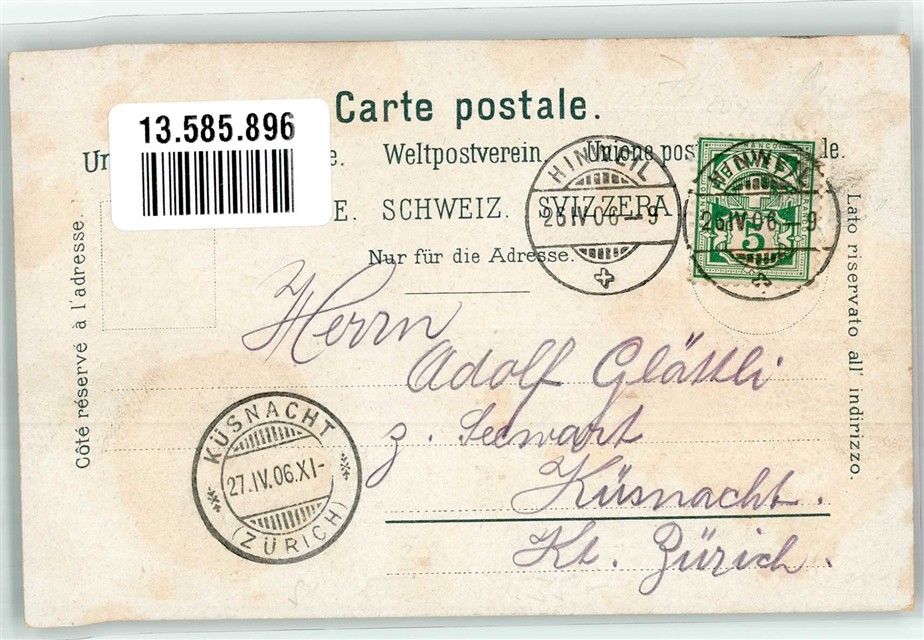 Carte postale.
13.585.896
Un e. Weltpostverein. Unione pos le.
E. SCHWEIZ. SVIZZERA
Nur für die Adresse.
HINWEIL
26 IV 06 – 9
HINWEIL
26 IV 06 – 9
5
Côté réservé à l'adresse.
Lato riservato all' indirizzo.
Herrn
Adolf Glättli
z. Seewart
Küsnacht.
Kt. Zürich.
KÜSNACHT
27.IV.06.XI-
(ZÜRICH)